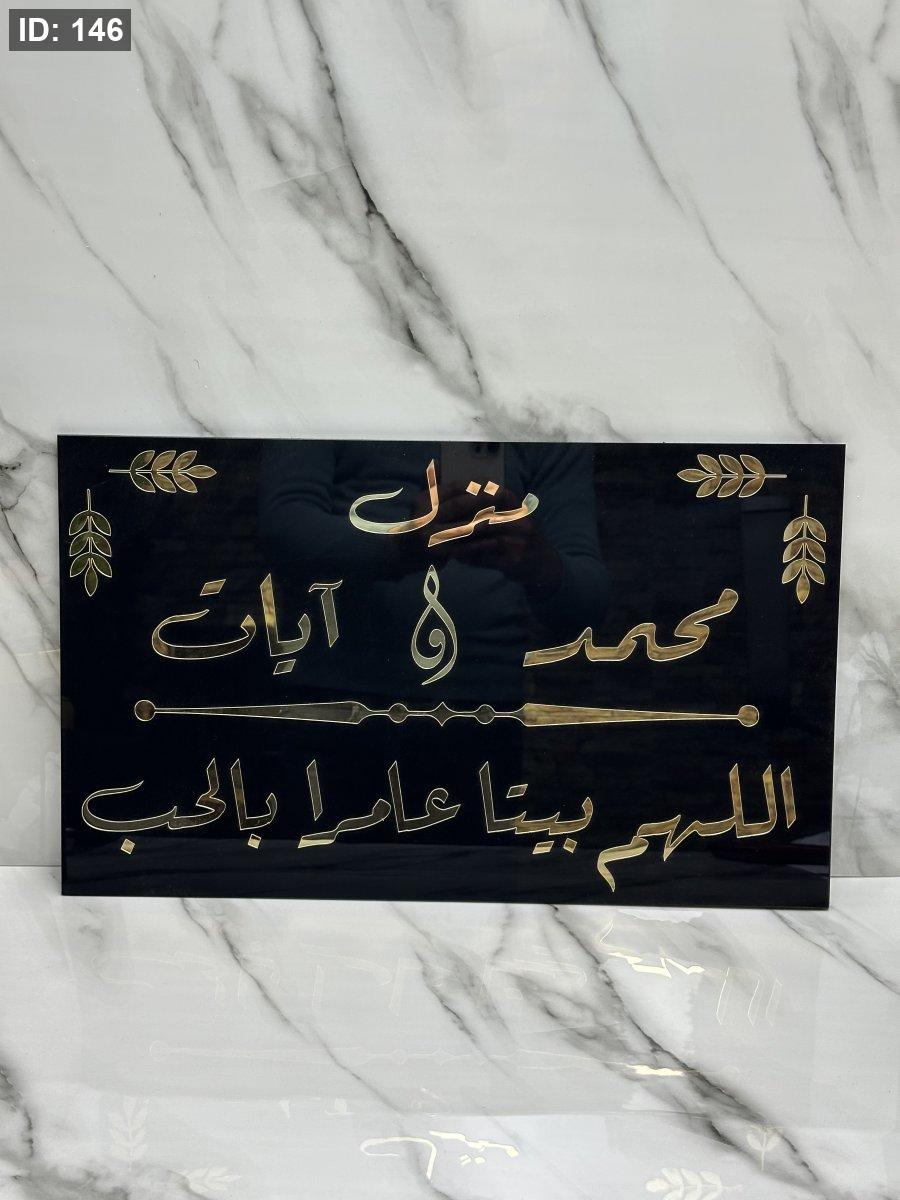 ID: 146
منزل
محمد و آيات
اللهم بيتا عامرا بالحب